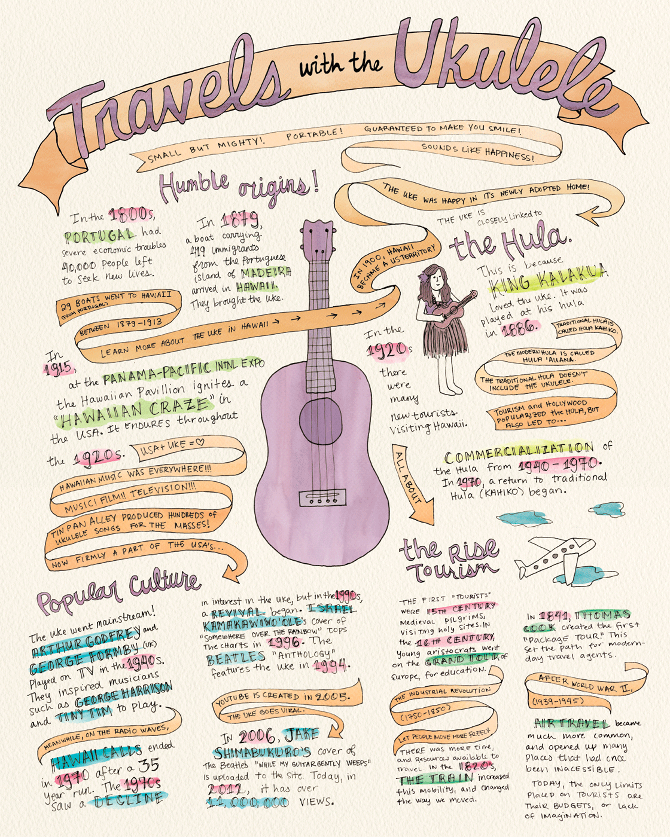 Travels with the Ukulele
SMALL BUT MIGHTY! PORTABLE! GUARANTEED TO MAKE YOU SMILE!
SOUNDS LIKE HAPPINESS!
Humble origins!
In the 1800s,
PORTUGAL had
severe economic troubles
40,000 people left
to seek new lives.
In 1879,
a boat carrying
419 immigrants
from the Portuguese
island of MADEIRA
arrived in HAWAII.
They brought the uke.
29 BOATS WENT TO HAWAII
(FROM PORTUGAL)
BETWEEN 1879-1913
LEARN MORE ABOUT THE UKE IN HAWAII
IN 1900, HAWAII
BECAME A US TERRITORY
THE UKE WAS HAPPY IN ITS NEWLY ADOPTED HOME!
THE UKE IS
CLOSELY linked to
the Hula.
This is because
KING KALAKUA
loved the uke. It was
played at his hula
in 1886.
TRADITIONAL HULA IS
CALLED HULA KAHIKO.
THE MODERN HULA IS CALLED
HULA 'AUANA.
THE TRADITIONAL HULA DOESN'T
INCLUDE THE UKULELE.
TOURISM AND HOLLYWOOD
POPULARIZED the HULA, BUT
ALSO LED TO...
COMMERCIALIZATION of
the Hula from 1940-1970.
In 1970, a return to traditional
Hula (KAHIKO) began.
In
1915,
at the PANAMA-PACIFIC INTNL EXPO
the Hawaiian Pavillion ignites a
"HAWAIIAN CRAZE" in
the USA. It endures throughout
the 1920s.
USA + UKE = ♡
HAWAIIAN MUSIC WAS EVERYWHERE!!!
MUSIC! FILM!! TELEVISION!!!
TIN PAN ALLEY PRODUCED HUNDREDS OF
UKULELE SONGS FOR THE MASSES!
NOW FIRMLY A PART OF THE USA'S...
In the
1920s
there
were
many
new tourists
visiting Hawaii.
ALL ABOUT
the Rise
Tourism
Popular Culture
The uke went mainstream!
ARTHUR GODFREY and
GEORGE FORMBY (UK)
Played on TV in the 1940s.
They inspired musicians
such as GEORGE HARRISON
and TINY TIM to play.
MEANWHILE, ON THE RADIO WAVES,
HAWAII CALLS ended
in 1970 after a 35
year run. The 1970s
saw a DECLINE
in interest in the uke, but in the 1990s,
a REVIVAL began. ISRAEL
KAMAKAWIWO'OLE's cover of
"SOMEWHERE OVER THE RAINBOW" tops
the charts in 1996. The
BEATLES "ANTHOLOGY"
features the uke in 1994.
YOUTUBE IS CREATED IN 2005.
THE UKE GOES VIRAL.
In 2006, JAKE
SHIMABUKURO'S cover of
the Beatles "WHILE MY GUITAR GENTLY WEEPS"
is uploaded to the site. Today, in
2012, it has over
11,000,000 VIEWS.
THE FIRST "TOURISTS"
were 15TH CENTURY
Medieval pilgrims,
visiting holy sites. In
the 16TH CENTURY,
young aristocrats went
on the GRAND TOUR of
Europe, for education.
THE INDUSTRIAL REVOLUTION
(1750-1850)
LET PEOPLE MOVE MORE FREELY.
THERE WAS MORE time,
and resources available to
travel. In the 1820s,
THE TRAIN increased
this mobility, and changed
the way we moved.
In 1841, THOMAS
COOK created the first
"PACKAGE TOUR." This
set the path for modern-
day travel agents.
AFTER WORLD WAR II,
(1939-1945)
AIR TRAVEL became
much more common,
and opened up many
places that had once
been INACCESSIBLE.
TODAY, THE ONLY LIMITS
PLACED ON TOURISTS ARE
THEIR BUDGETS, OR LACK
OF IMAGINATION.